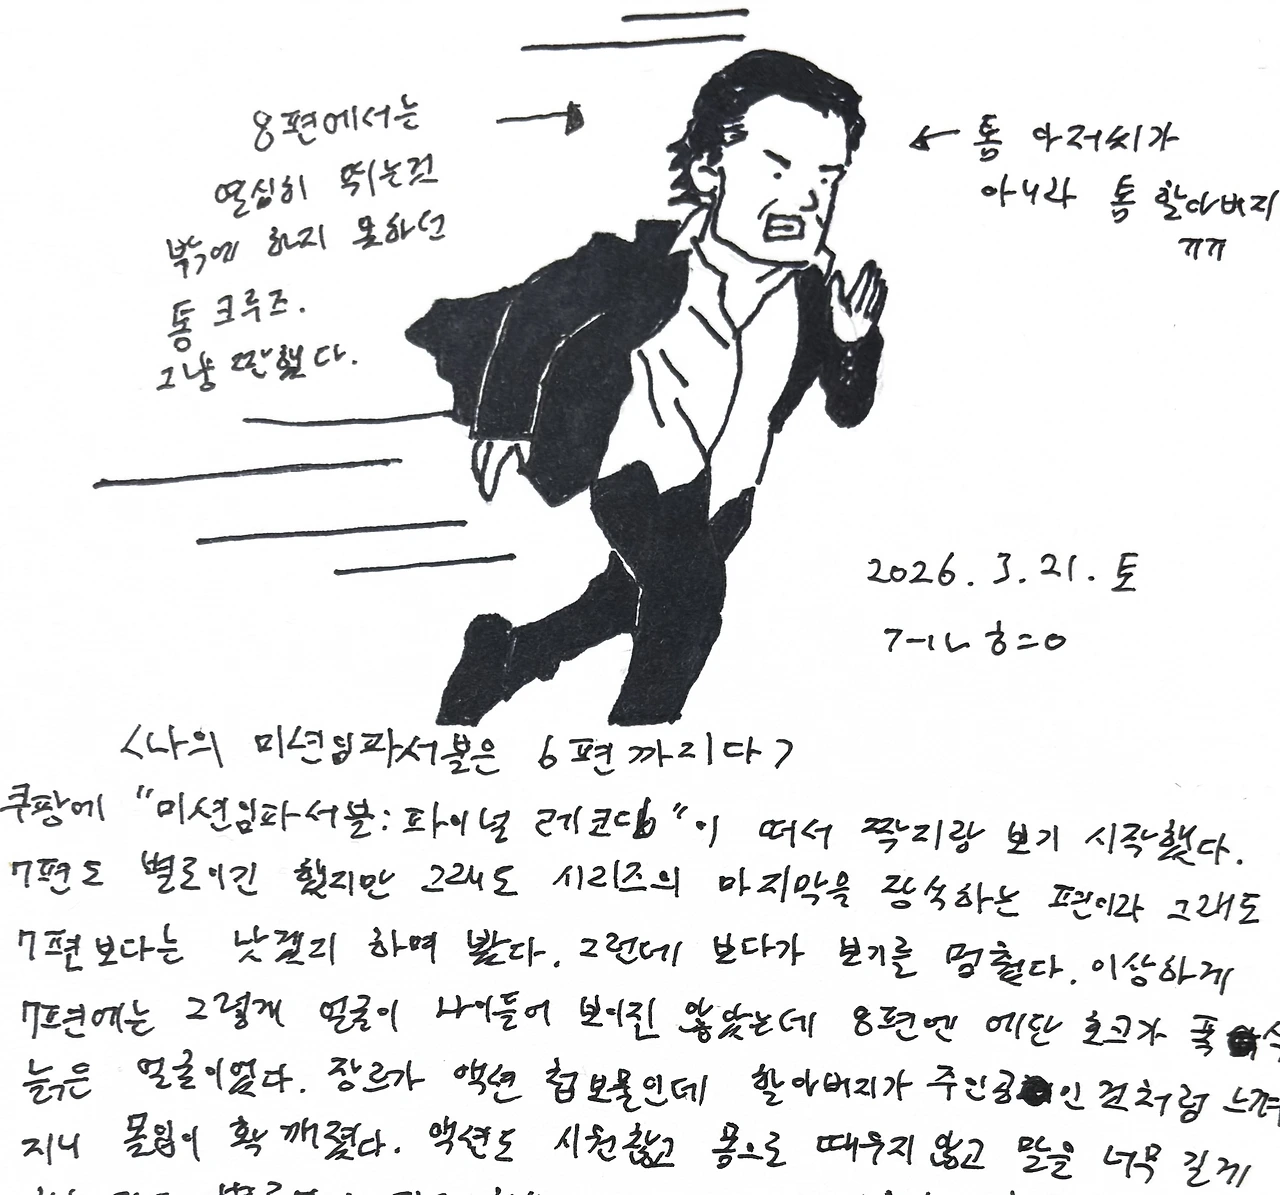 8편에서는
열심히 뛰는것
밖에 하지 못하신
톰 크루즈.
그냥 짠했다.
← 톰 아저씨가
아니라 톰 할아버지
ㅠㅠ
2026. 3. 21. 토
<나의 미션임파서블은 6편까지다>
쿠팡에 "미션임파서블: 파이널 레코딩"이 떠서 짝지랑 보기 시작했다.
7편도 별로이긴 했지만 그래도 시리즈의 마지막을 장식하는 편이라 그래도
7편보다는 낫겠지 하며 봤다. 그런데 보다가 보기를 멈췄다. 이상하게
7편에는 그렇게 얼굴이 나이들어 보이진 않았는데 8편엔 에단 헌트가 푹
늙은 얼굴이었다. 장르가 액션 첩보물인데 할아버지가 주인공인 것처럼 느껴
지니 몰입이 확 깨졌다. 액션도 시원찮고 몸으로 때우지 않고 말을 너무 길게